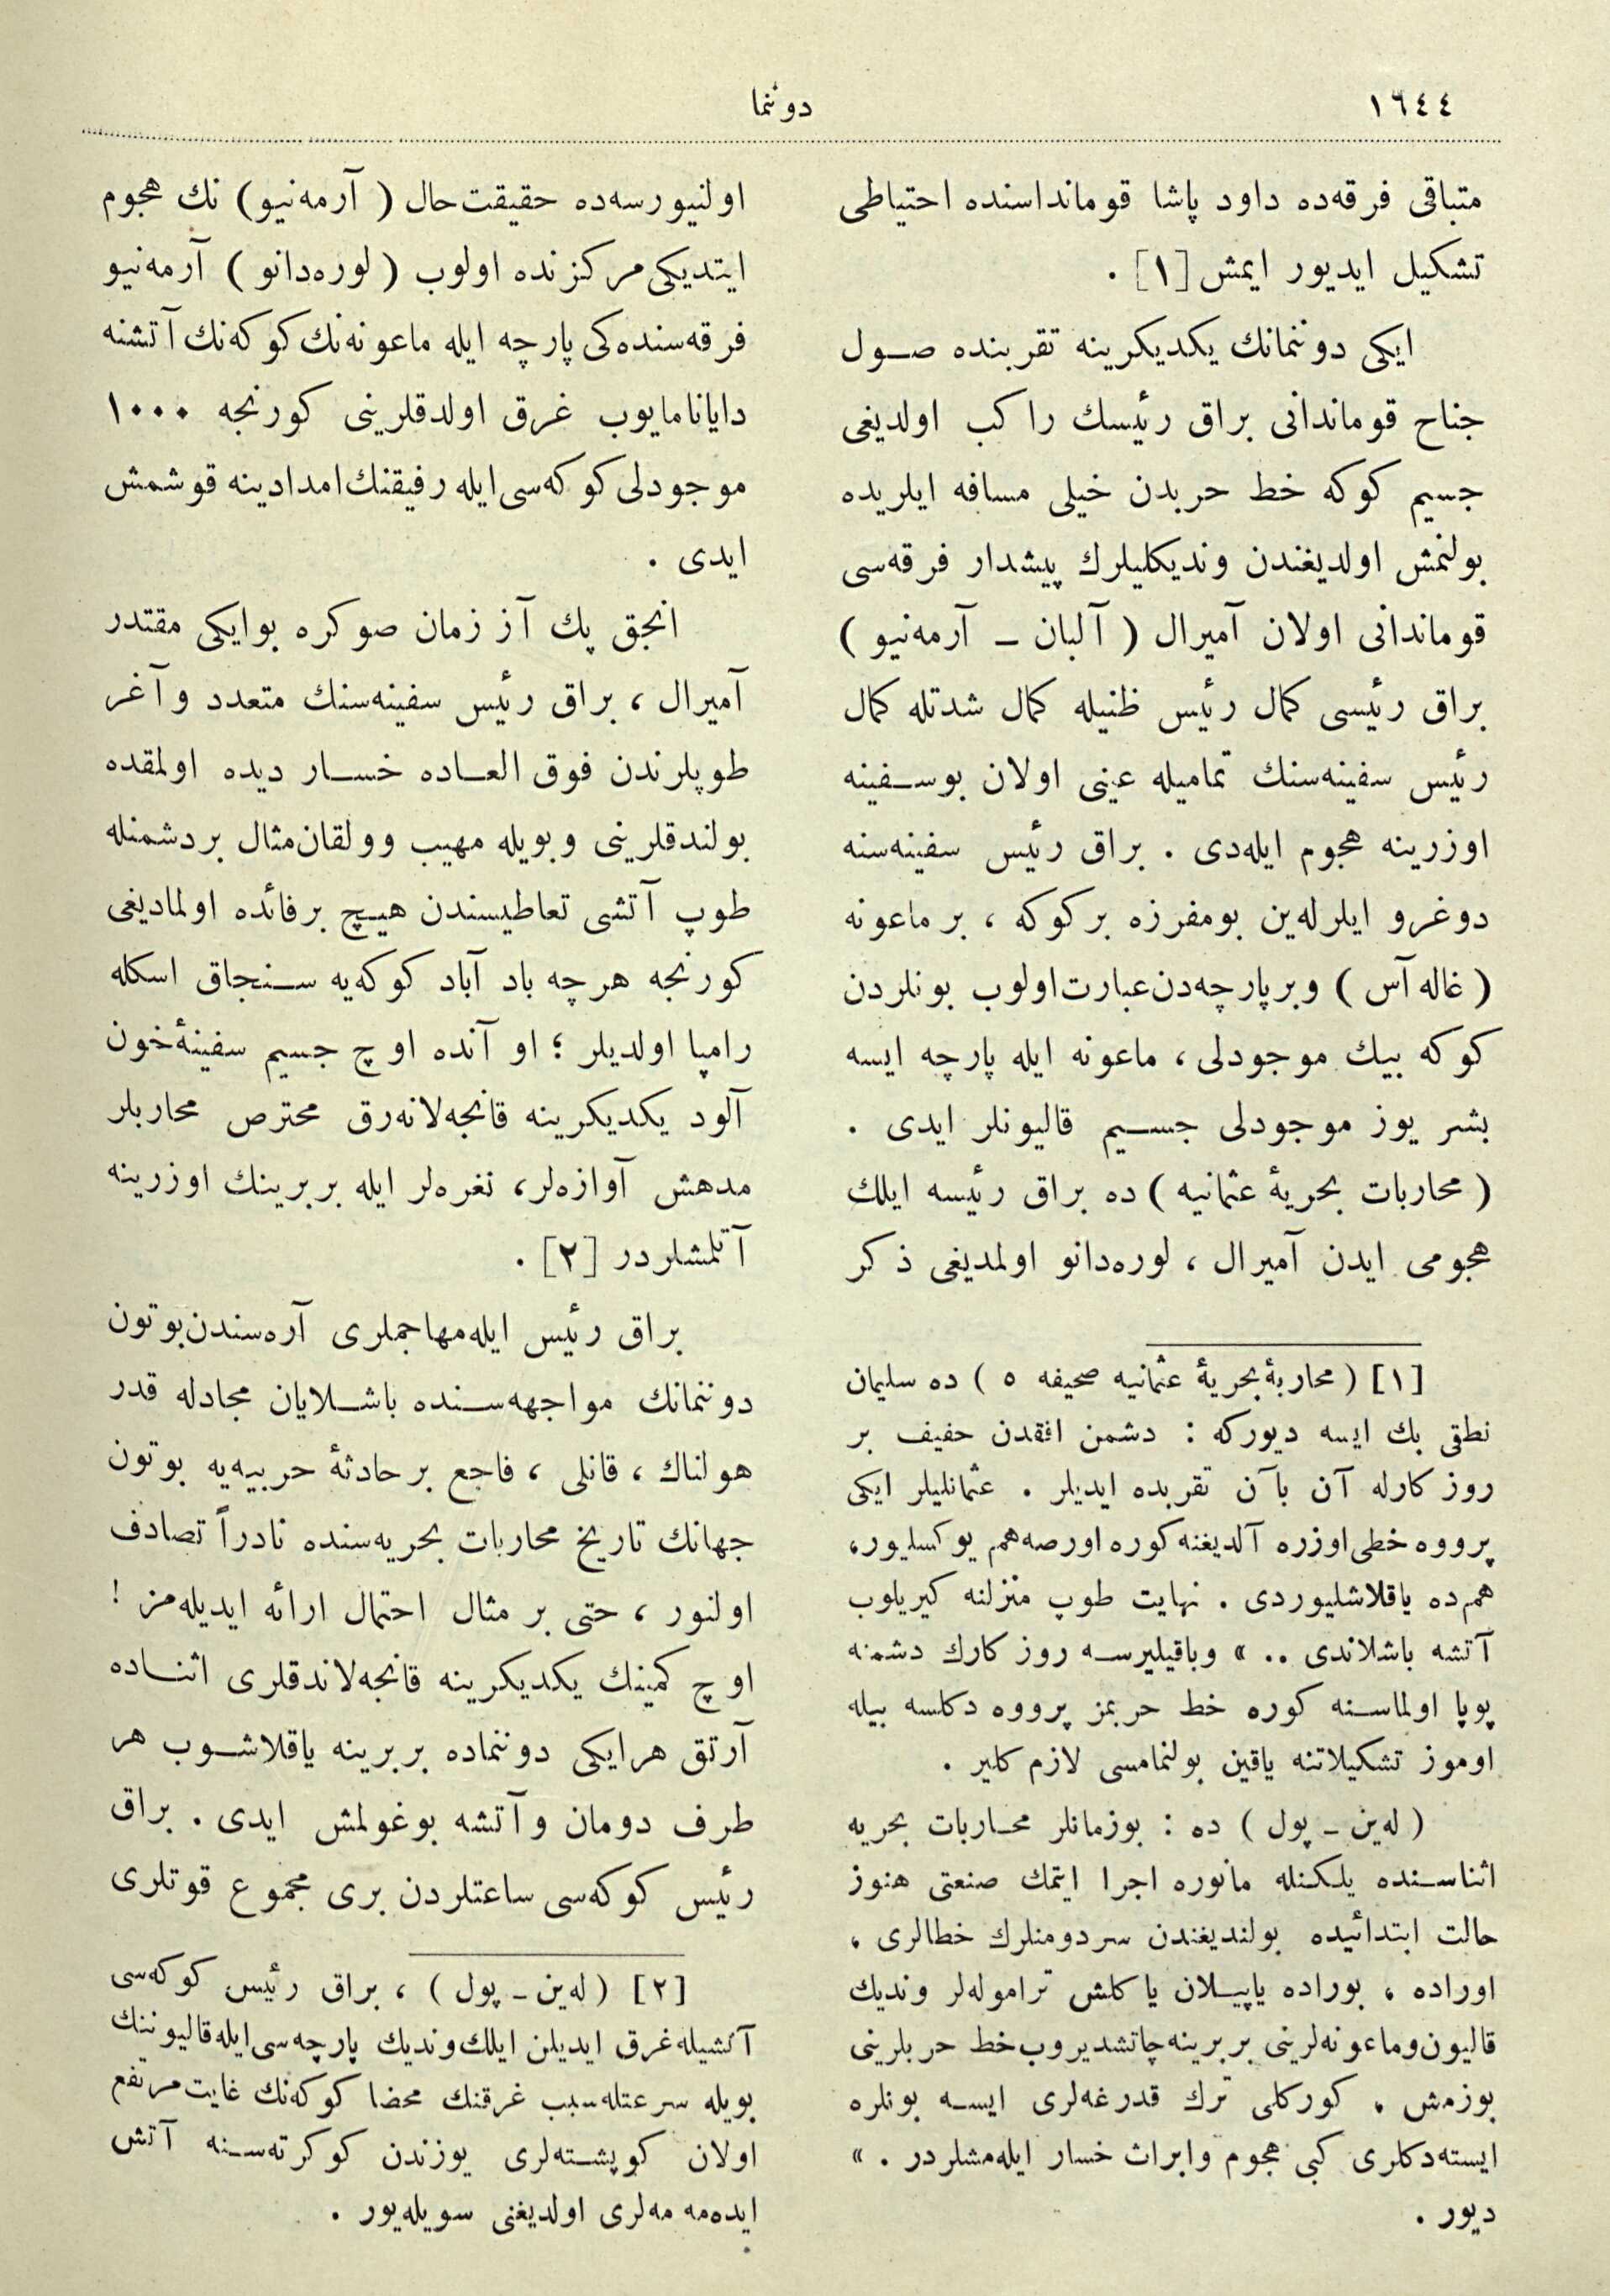 ١٦٤٤
دوننما
متباقی فرقه‌ده داود پاشا قوماندا‌سنده احتیاطی
تشکیل ایدیور ایمش [١] .
ایکی دوننمانك یکدیکرینه تقربنده صول
جناح قوماندانی براق رئیسك راکب اولدیغی
جسیم کوکه خط حربدن خیلی مسافه ایلریده
بولنمش اولدیغندن وندیکلیلرك پیشدار فرقه‌سی
قوماندانی اولان آمیرال ( آلبان ـ آرمه‌نیو )
براق رئیسی کمال رئیس ظنیله کمال شدتله کمال
رئیس سفینه‌سنك تمامیله عینی اولان بوسفینه
اوزرینه هجوم ایله‌دی . براق رئیس سفینه‌سنه
دوغرو ایلرله‌ین بومفرزه برکوکه ، بر ماعونه
( غاله آس ) وبرپارچه‌دن عبارت اولوب بونلردن
کوکه بیك موجودلی ، ماعونه ایله پارچه ایسه
بشر یوز موجودلی جسیم قالیونلر ایدی .
( محاربات بحریهٔ عثمانیه ) ده براق رئیسه ایلك
هجومی ایدن آمیرال ، لوره‌دانو اولمدیغی ذکر
[١] ( محاربهٔ بحریهٔ عثمانیه صحیفه ٥ ) ده سلیمان
نطقی بك ایسه دیورکه : دشمن افقدن خفیف بر
روزکارله آن بآن تقربده ایدیلر . عثمانلیلر ایکی
پرووه خطی اوزره آلدیغنه کوره اورصه هم یوکسلیور،
هم‌ده یاقلاشلیوردی . نهایت طوپ منزلنه کیریلوب
آتشه باشلاندی .. » وباقیلیرسه روزکارك دشمنه
پوپا اولماسنه کوره خط حربمز پرووه دکلسه بیله
اوموز تشکیلاتنه یاقین بولنمامسی لازم کلیر .
( له‌ین ـ پول ) ده : بوزمانلر محاربات بحریه
اثناسنده یلکنله مانوره اجرا ایتمك صنعتی هنوز
حالت ابتدائیده بولندیغندن سردومنلرك خطالری ،
اوراده ، بوراده یاپیلان یاکلش تراموله‌لر وندیك
قالیون وماعونه‌لرینی بربرینه چاتشدیروب خط حربلرینی
بوزمش . کورکلی ترك قدرغه‌لری ایسه بونلره
ایسته‌دکلری کبی هجوم وابراث خسار ایله‌مشلردر . »
دیور .
اولنیورسه‌ده حقیقت حال ( آرمه‌نیو ) نك هجوم
ایتدیکی مرکزنده اولوب ( لوره‌دانو ) آرمه‌نیو
فرقه‌سنده‌کی پارچه ایله ماعونه‌نك کوکه‌نك آتشنه
دایانامایوب غرق اولدقلرینی کورنجه ١٠٠٠
موجودلی کوکه‌سی ایله رفیقنك امدادینه قوشمش
ایدی .
انجق پك آز زمان صوکره بوایکی مقتدر
آمیرال ، براق رئیس سفینه‌سنك متعدد وآغر
طوپلرندن فوق العاده خسار دیده اولمقده
بولندقلرینی وبویله مهیب وولقان‌مثال بردشمنله
طوپ آتشی تعاطیسندن هیچ برفائده اولمادیغی
کورنجه هرچه باد آباد کوکه‌یه سنجاق اسکله
رامپا اولدیلر ؛ او آنده اوچ جسیم سفینهٔ خون
آلود یکدیکرینه قانجه‌لانه‌رق محترص محاربلر
مدهش آوازه‌لر، نغره‌لر ایله بربرینك اوزرینه
آتلمشلردر [٢] .
براق رئیس ایله مهاجملری آره‌سندن بوتون
دوننمانك مواجهه‌سنده باشلایان مجادله قدر
هولناك ، قانلی ، فاجع برحادثهٔ حربیه‌یه بوتون
جهانك تاریخ محاربات بحریه‌سنده نادراً تصادف
اولنور ، حتی بر مثال احتمال ارائه ایدیله‌مز !
اوچ کمینك یکدیکرینه قانجه‌لاندقلری اثناده
آرتق هرایکی دوننماده بربرینه یاقلاشوب هر
طرف دومان وآتشه بوغولمش ایدی . براق
رئیس کوکه‌سی ساعتلردن بری مجموع قوتلری
[٢] ( له‌ین ـ پول ) ، براق رئیس کوکه‌سی
آتشیله غرق ایدیلن ایلك وندیك پارچه‌سی ایله قالیوننك
بویله سرعتله سبب غرقنك محضا کوکه‌نك غایت مرتفع
اولان کوپشته‌لری یوزندن کوکرته‌سنه آتش
ایده‌مه مه‌لری اولدیغنی سویله‌یور .